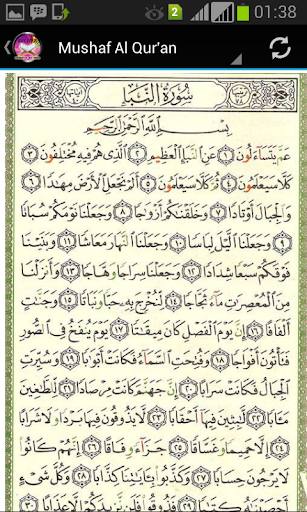 01:38
Mushaf Al Qur'an
سُورَةُ النَّبَإِ
بِسْمِ اللَّهِ الرَّحْمَٰنِ الرَّحِيمِ
عَمَّ يَتَسَاءَلُونَ ١ عَنِ النَّبَإِ الْعَظِيمِ ٢ الَّذِي هُمْ فِيهِ مُخْتَلِفُونَ ٣
كَلَّا سَيَعْلَمُونَ ٤ ثُمَّ كَلَّا سَيَعْلَمُونَ ٥ أَلَمْ نَجْعَلِ الْأَرْضَ مِهَادًا ٦
وَالْجِبَالَ أَوْتَادًا ٧ وَخَلَقْنَاكُمْ أَزْوَاجًا ٨ وَجَعَلْنَا نَوْمَكُمْ سُبَاتًا
٩ وَجَعَلْنَا اللَّيْلَ لِبَاسًا ١٠ وَجَعَلْنَا النَّهَارَ مَعَاشًا ١١ وَبَنَيْنَا
فَوْقَكُمْ سَبْعًا شِدَادًا ١٢ وَجَعَلْنَا سِرَاجًا وَهَّاجًا ١٣ وَأَنْزَلْنَا
مِنَ الْمُعْصِرَاتِ مَاءً ثَجَّاجًا ١٤ لِنُخْرِجَ بِهِ حَبًّا وَنَبَاتًا ١٥ وَجَنَّاتٍ
أَلْفَافًا ١٦ إِنَّ يَوْمَ الْفَصْلِ كَانَ مِيقَاتًا ١٧ يَوْمَ يُنْفَخُ فِي الصُّورِ
فَتَأْتُونَ أَفْوَاجًا ١٨ وَفُتِحَتِ السَّمَاءُ فَكَانَتْ أَبْوَابًا ١٩ وَسُيِّرَتِ
الْجِبَالُ فَكَانَتْ سَرَابًا ٢٠ إِنَّ جَهَنَّمَ كَانَتْ مِرْصَادًا ٢١ لِلطَّاغِينَ
مَآبًا ٢٢ لَابِثِينَ فِيهَا أَحْقَابًا ٢٣ لَا يَذُوقُونَ فِيهَا بَرْدًا وَلَا شَرَابًا
٢٤ إِلَّا حَمِيمًا وَغَسَّاقًا ٢٥ جَزَاءً وِفَاقًا ٢٦ إِنَّهُمْ كَانُوا
لَا يَرْجُونَ حِسَابًا ٢٧ وَكَذَّبُوا بِآيَاتِنَا كِذَّابًا ٢٨ وَكُلَّ شَيْءٍ
أَحْصَيْنَاهُ كِتَابًا ٢٩ فَذُوقُوا فَلَنْ نَزِيدَكُمْ إِلَّا عَذَابًا ٣٠